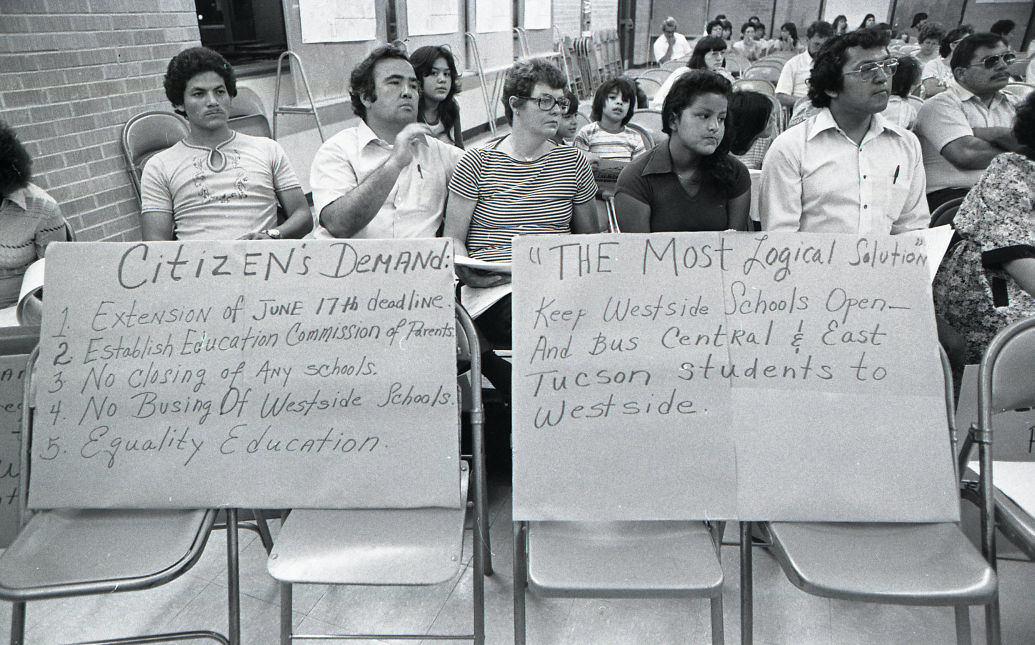 Citizen's Demand:
1. Extension of June 17th deadline.
2 Establish Education Commission of Parents.
3. No closing of Any schools.
4. No Busing Of Westside Schools.
5. Equality Education.
"THE Most Logical Solution"
Keep Westside Schools Open—
And Bus Central & East
Tucson students to
Westside.